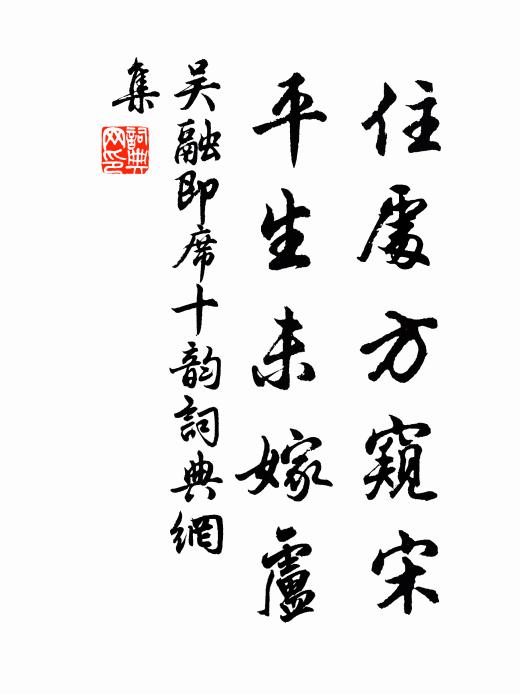 住處方窺宋
平生未嫁盧
吴融即席十韵詞典網
集
詞典
网印